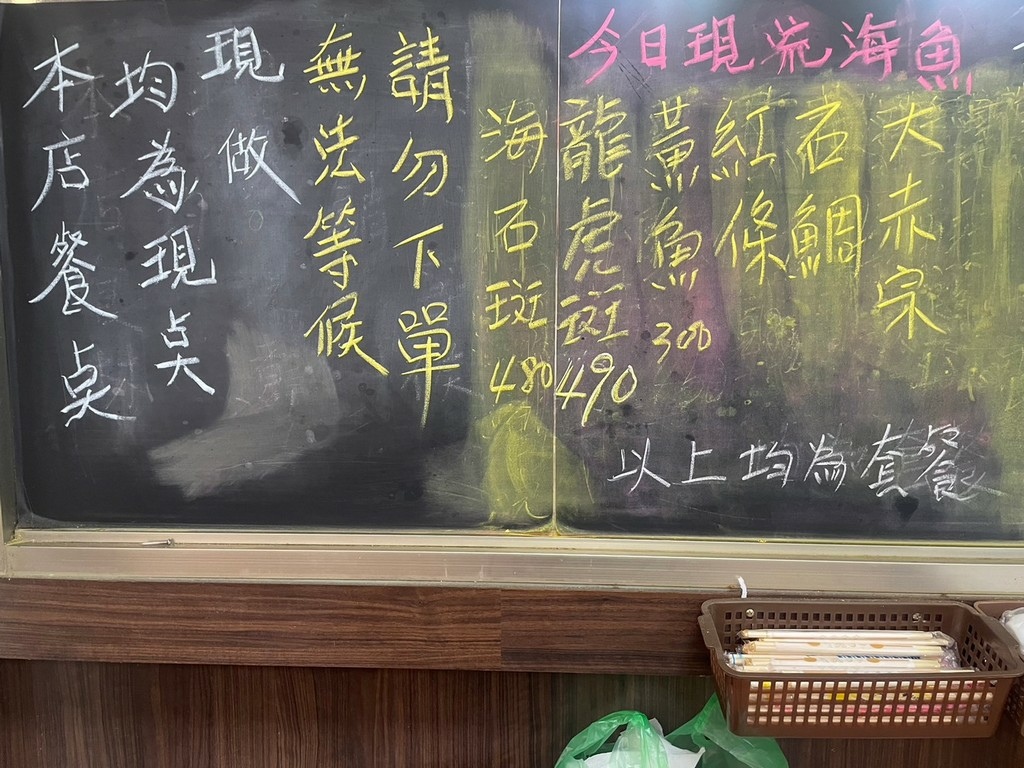 今日現流海魚
大赤宗
石鯛
紅條
黃魚 300
龍虎斑 490
海石斑 480
以上均為套餐
請勿下單
無法等候
現做
均為現点
本店餐点